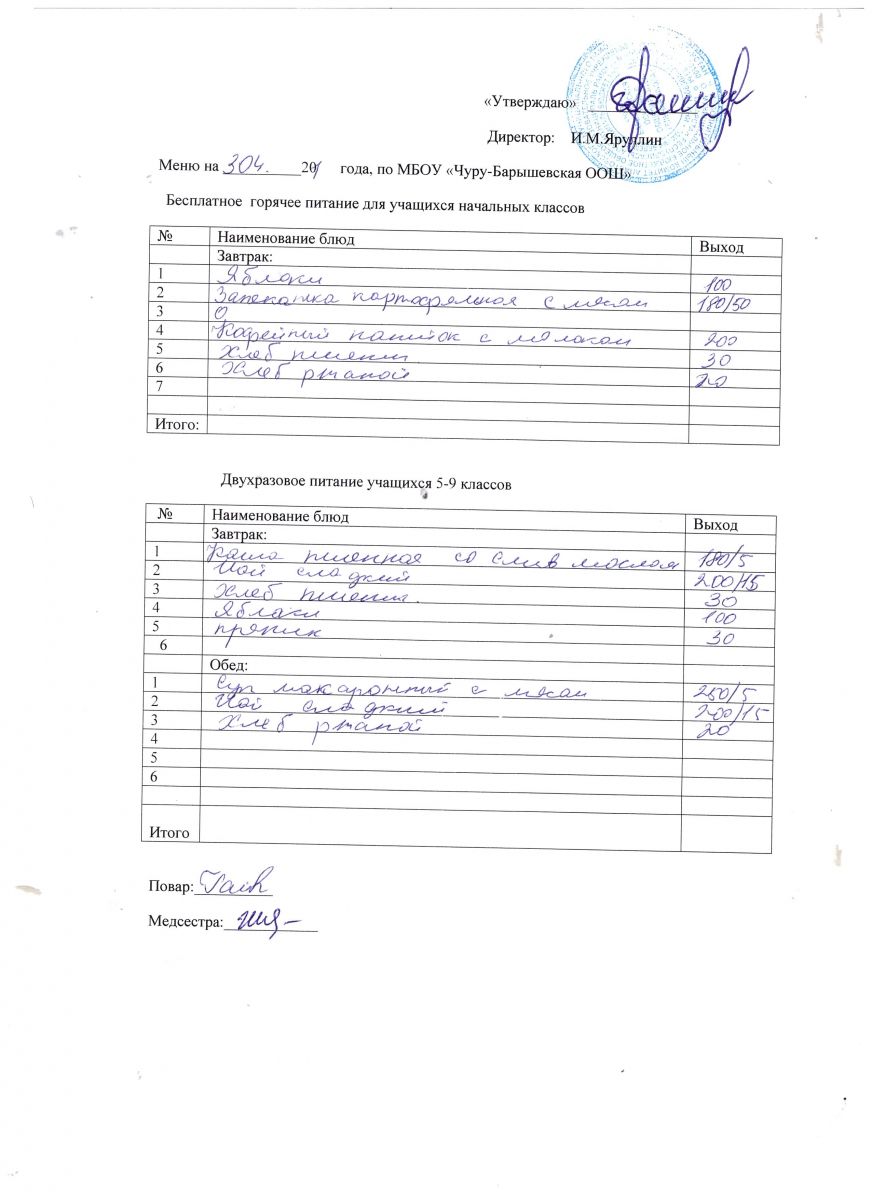 «Утверждаю»
Директор: И.М.Яруллин
Меню на 30 4. 2021 года, по МБОУ «Чуру-Барышевская ООШ»
Бесплатное горячее питание для учащихся начальных классов
№ Наименование блюд Выход
Завтрак:
1 Яблоки 100
2 Запеканка картофельная с мясом 180/50
3 О
4 Кофейный напиток с молоком 200
5 Хлеб пшенич. 30
6 Хлеб ржаной 20
7
Итого:
Двухразовое питание учащихся 5-9 классов
№ Наименование блюд Выход
Завтрак:
1 Каша пшенная со слив маслом 180/5
2 Чай сладкий 200/15
3 Хлеб пшенич. 30
4 Яблоки 100
5 пряник 30
6
Обед:
1 Суп макаронный с мясом 250/5
2 Чай сладкий 200/15
3 Хлеб ржаной 20
4
5
6
Итого
Повар:
Медсестра: